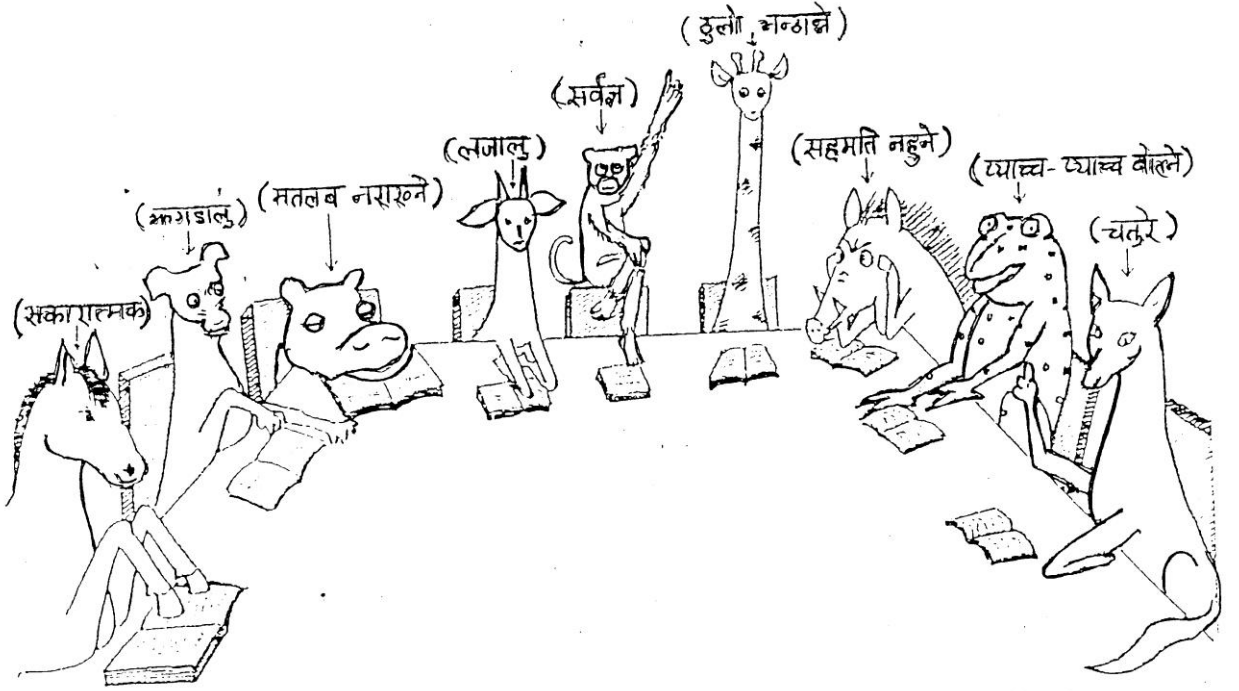 (सकारात्मक)
(झगडालु)
(मतलब नराख्ने)
(लजालु)
(सर्वज्ञ)
(ठुलो भन्ठान्ने)
(सहमति नहुने)
(प्याच्च-प्याच्च बोल्ने)
(चतुरे)